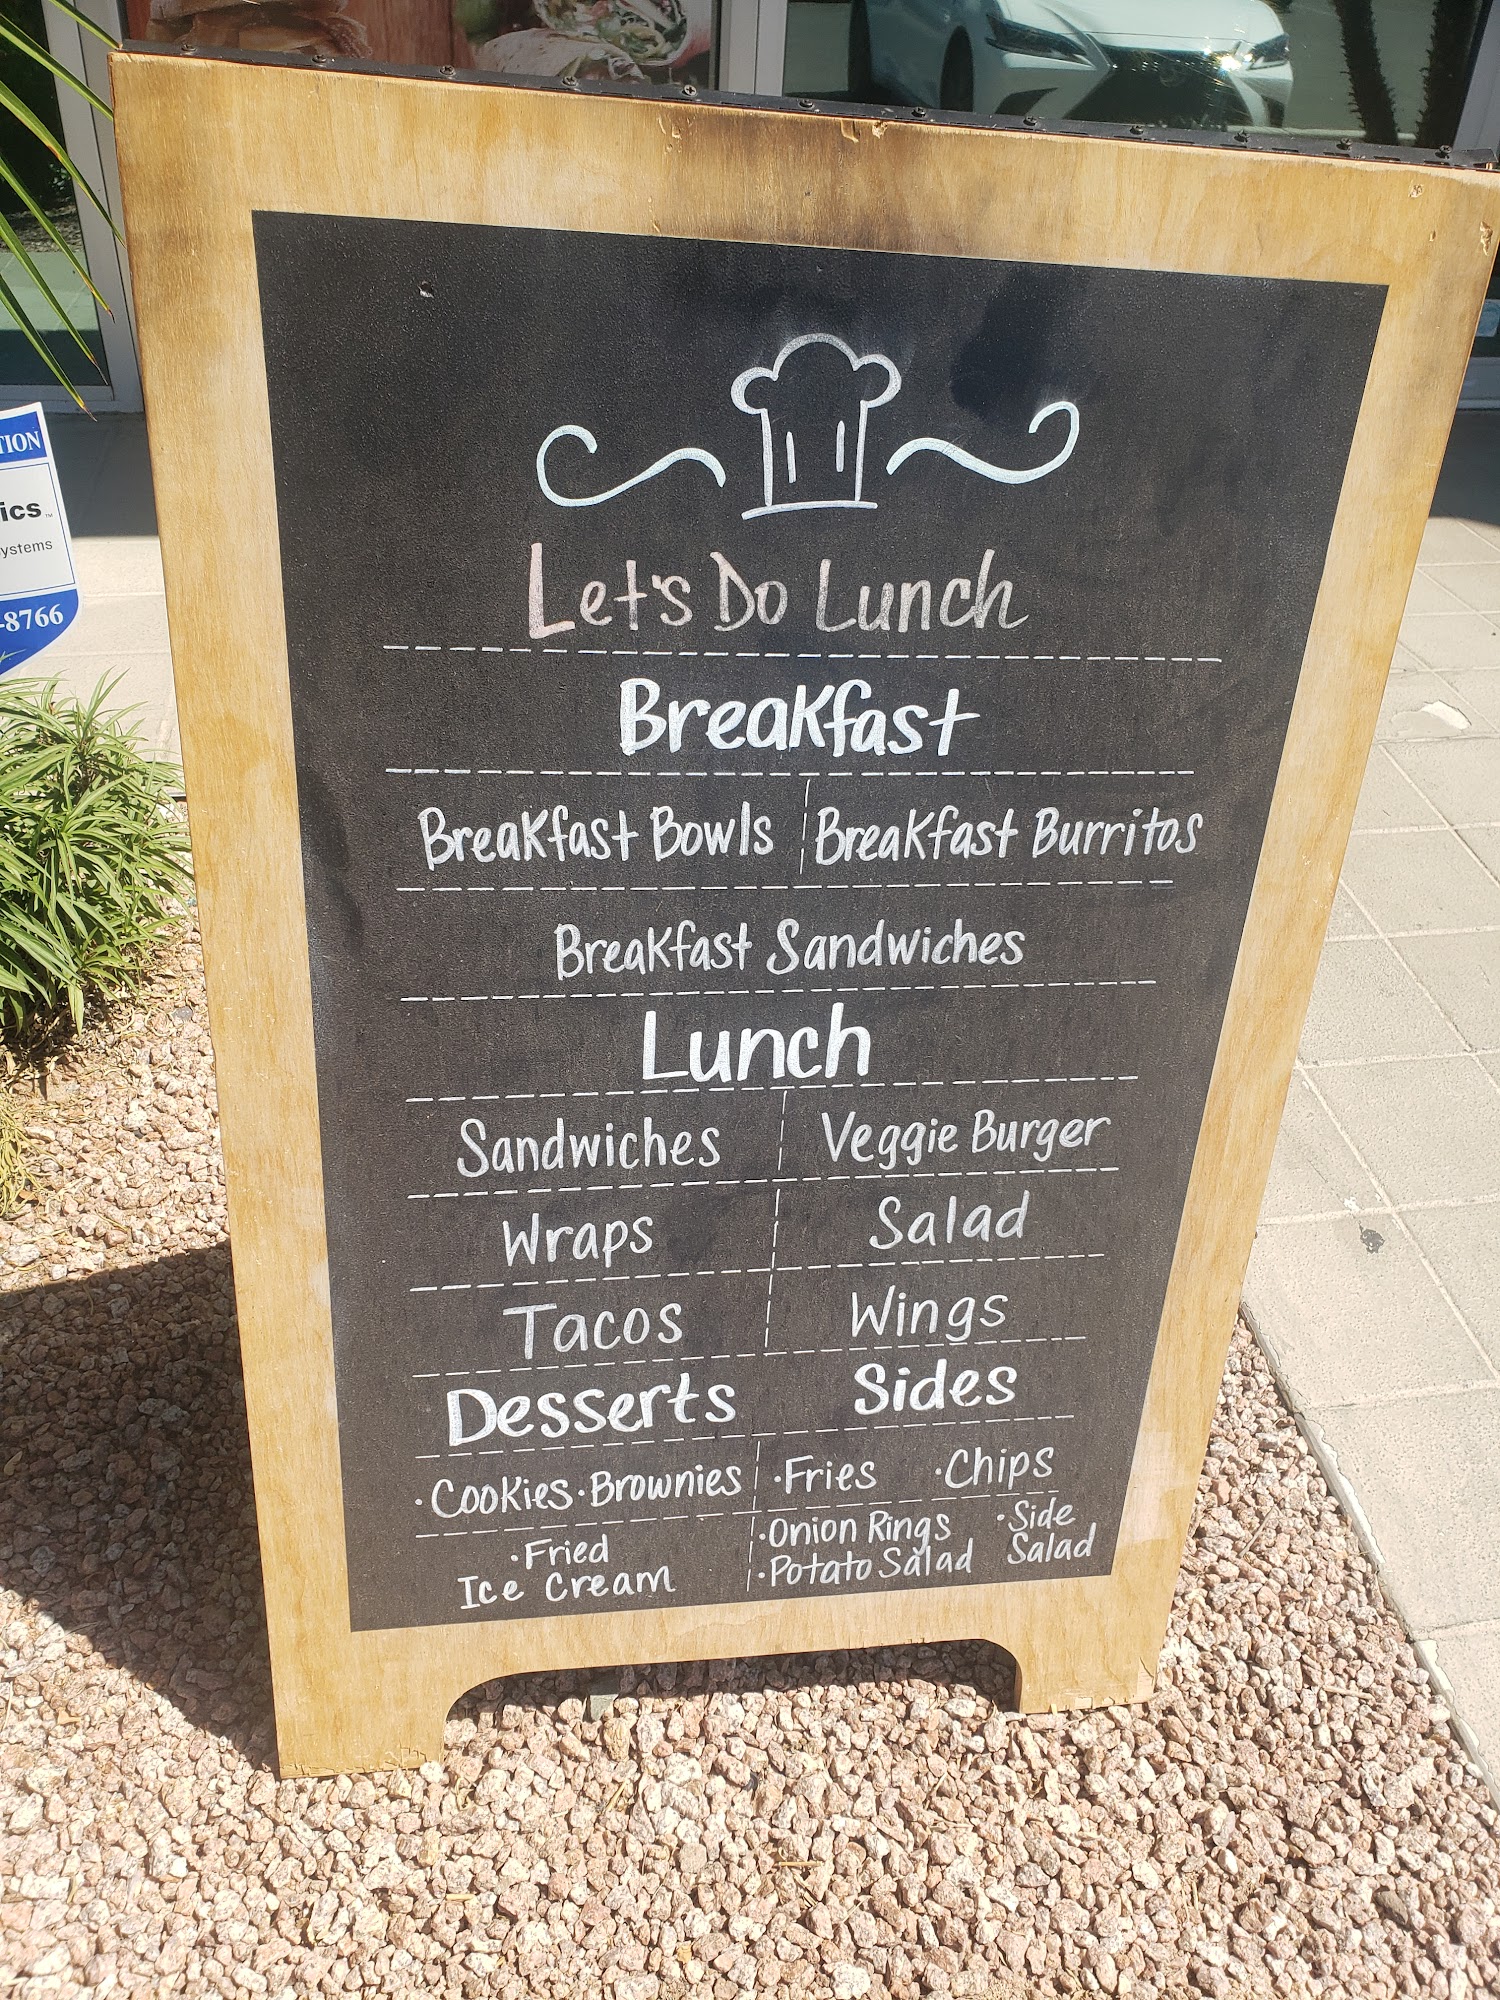 Let's Do Lunch
Breakfast
Breakfast Bowls Breakfast Burritos
Breakfast Sandwiches
Lunch
Sandwiches Veggie Burger
Wraps Salad
Tacos Wings
Desserts Sides
·Cookies ·Brownies ·Fries ·Chips
·Fried
Ice Cream
·Onion Rings
·Potato Salad
·Side
Salad
TION
ics™
ystems
-8766